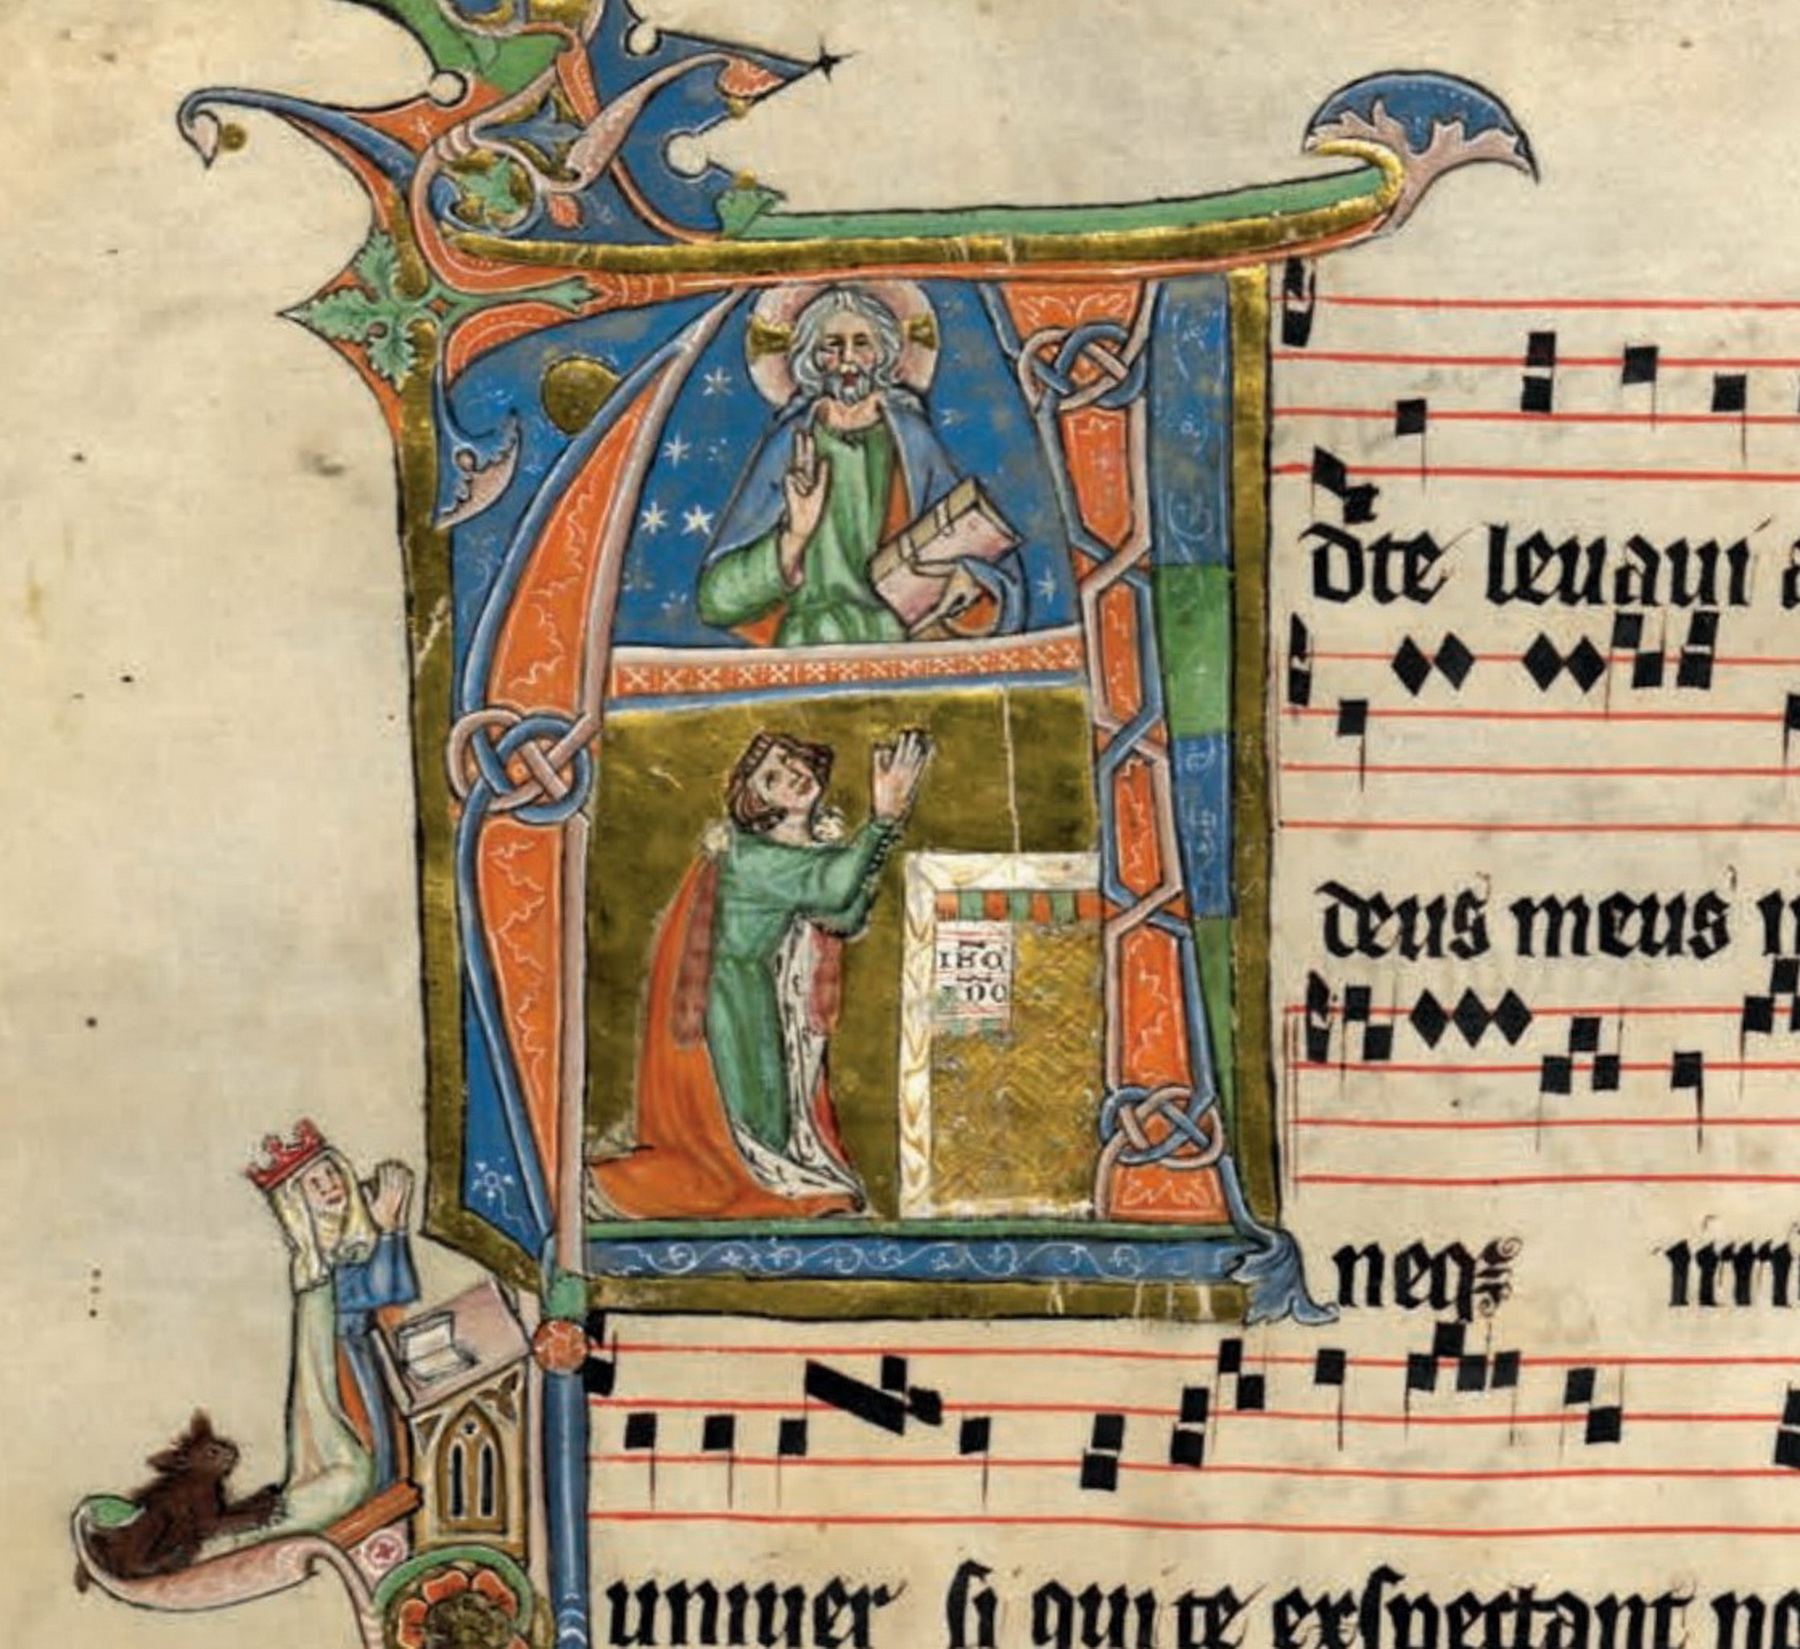 dte leuaui a
deus meus n
neqꝫ irri
uniuer si qui te exspectant no